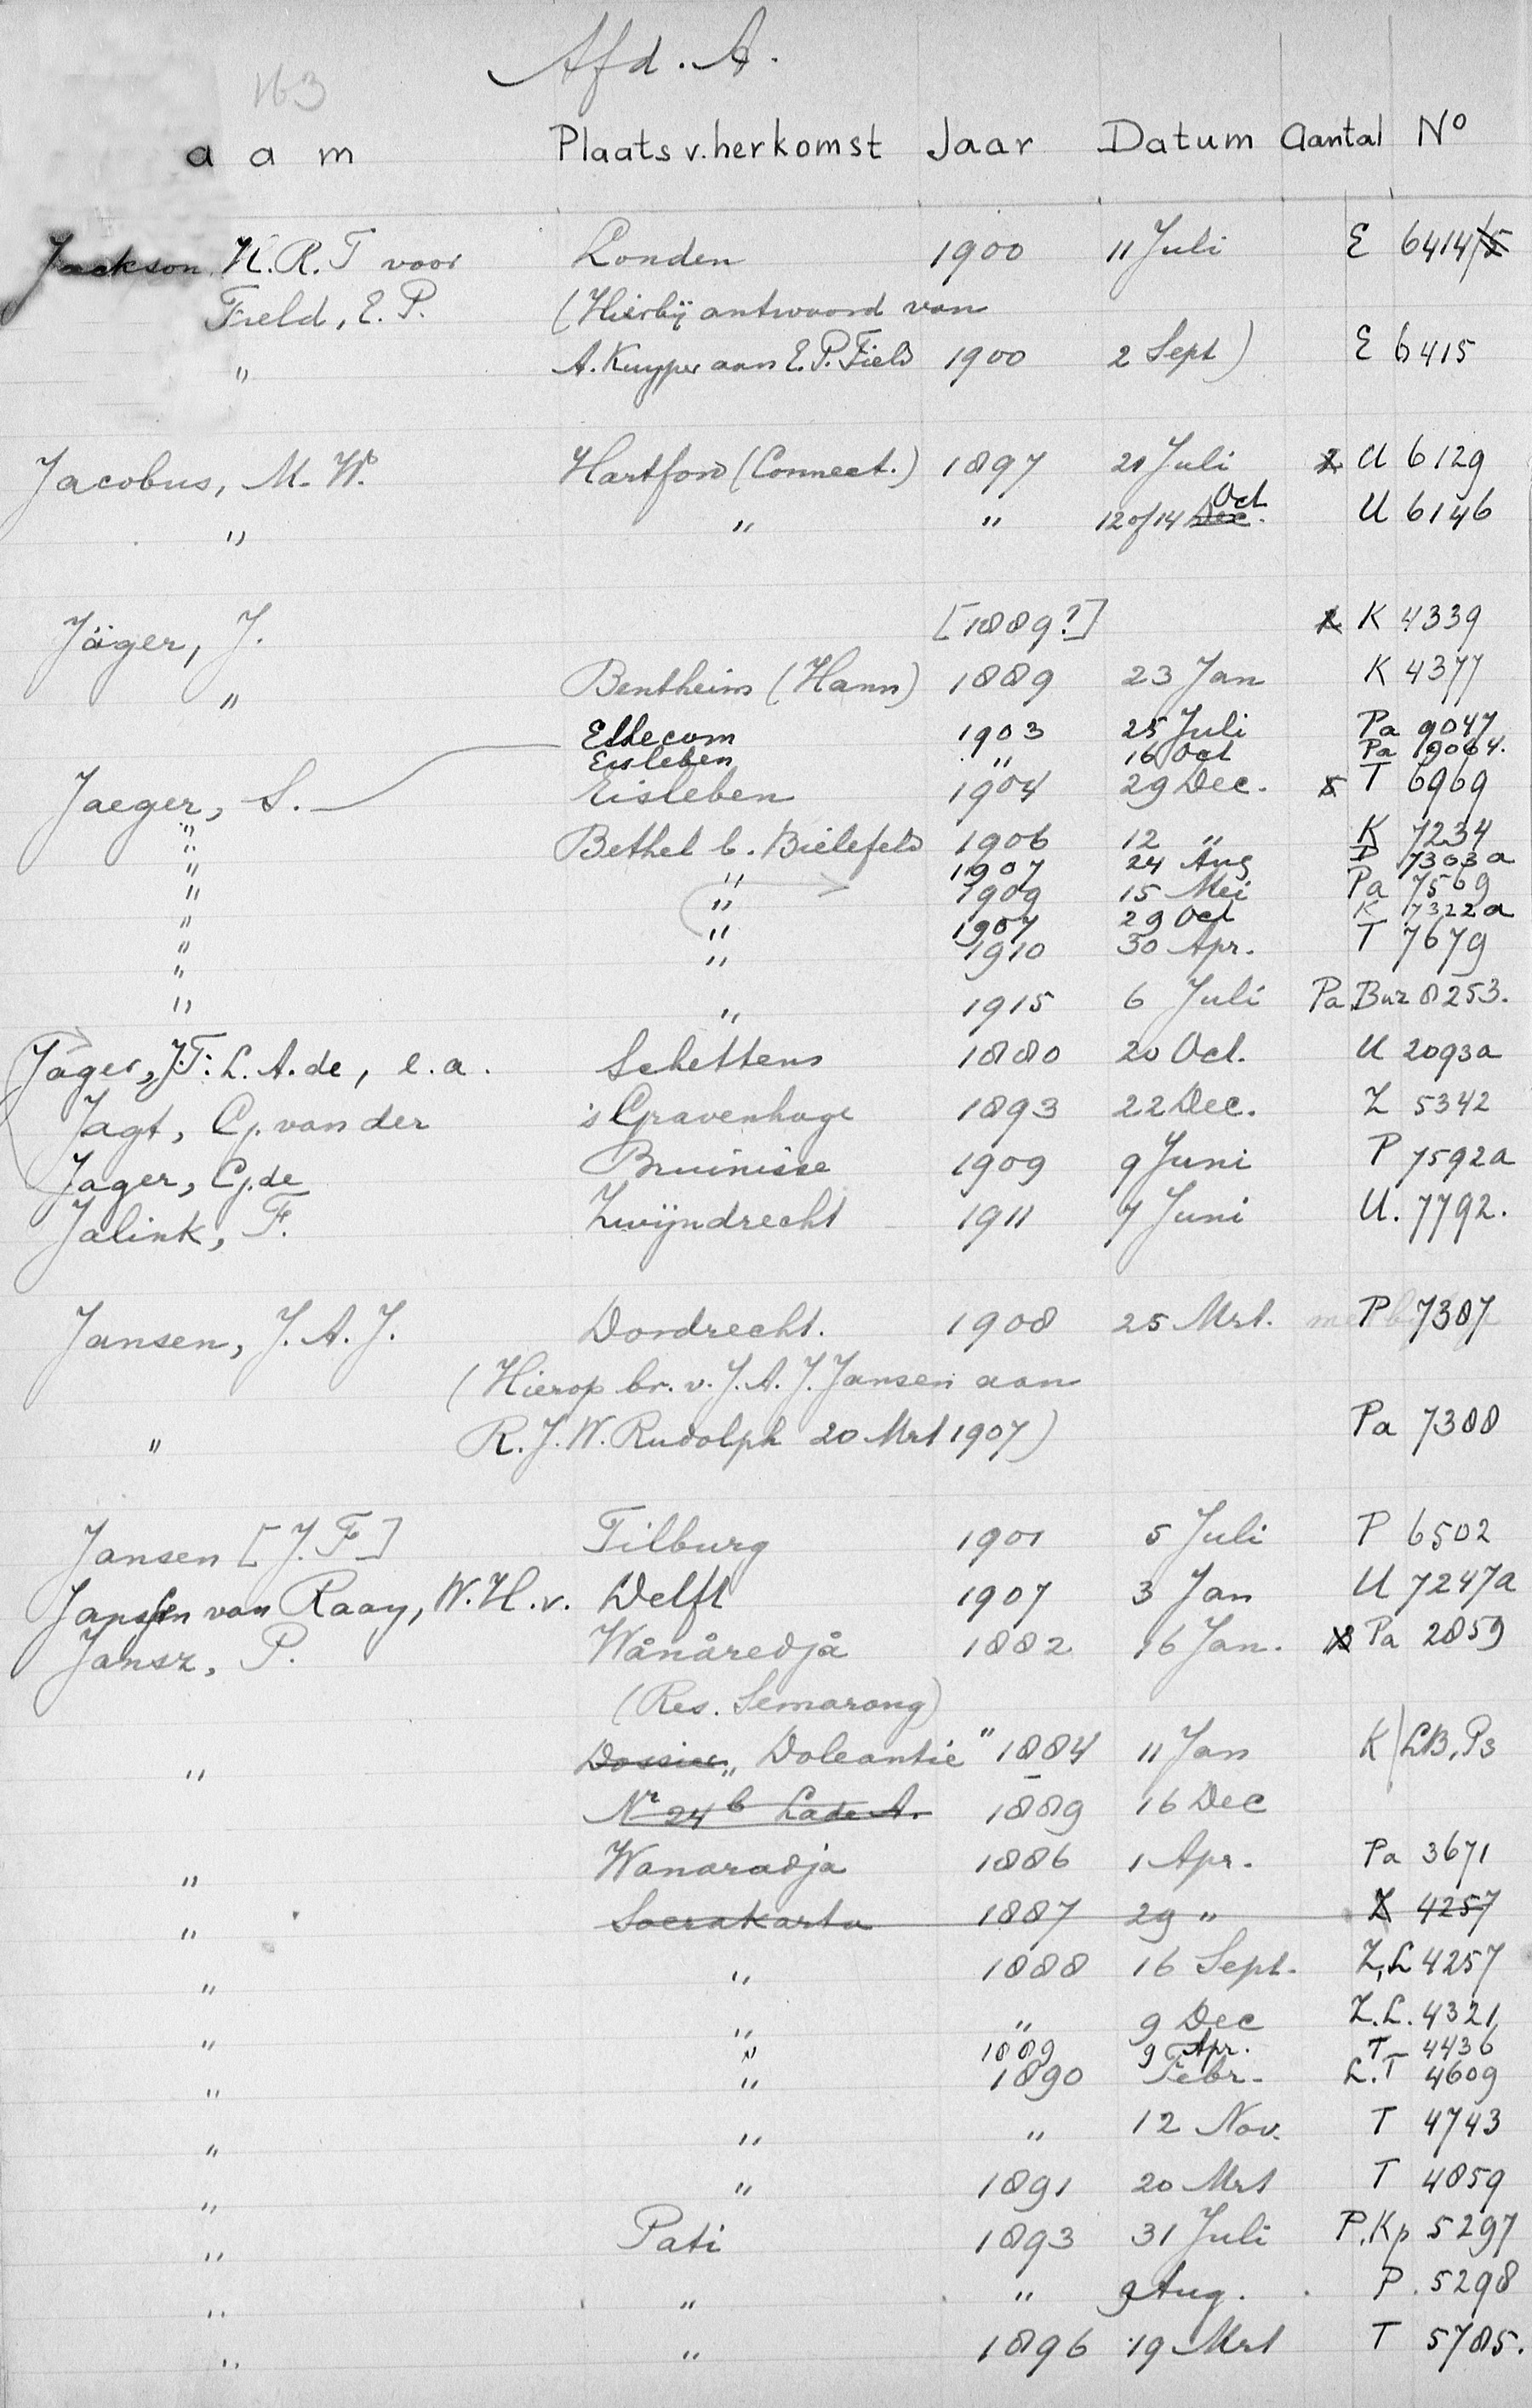 Afd. A.
163
a a m Plaats v. herkomst Jaar Datum Aantal No
Jackson H.R.T voor Londen 1900 11 Juli E 6414/5
Field, E.P. (Hierbij antwoord van
" A. Kuyper aan E.P. Field 1900 2 Sept) E 6415
Jacobus, M.W. Hartford (Connect.) 1897 21 Juli 2 U 6129
" " " 12 of 14 Dec. Oct U 6146
Jäger, J. [1889?] K 4339
" Bentheim (Hann) 1889 23 Jan K 4377
Ellecom 1903 25 Juli Pa 9047
Eisleben " 16 Oct Pa 19064.
Jaeger, S. Eisleben 1904 29 Dec. 5 T 6969
" Bethel b. Bielefeld 1906 12 " K 7234
" " 1907 24 Aug P 7303a
" " 1909 15 Mei Pa 7569
" " 1907 29 Oct K 7322a
" " 1910 30 Apr. T 7679
" " 1915 6 Juli Pa Buz 8253.
Jager, J.F.L.A. de, e.a. Schettens 1880 20 Oct. U 2093a
Jagt, Cj. van der 's Gravenhage 1893 22 Dec. Z 5342
Jager, Cj. de Bruinisse 1909 9 Juni P 7592a
Jalink, F. Zwijndrecht 1911 7 Juni U. 7792.
Jansen, J.A.J. Dordrecht. 1908 25 Mrt. P 7387
(Hierop br. v. J.A.J. Jansen aan
" R.J.W. Rudolph 20 Mrt 1907) Pa 7388
Jansen [J.F] Tilburg 1901 5 Juli P 6502
Janssen van Raay, W.H.v. Delft 1907 3 Jan U 7247a
Jansz, P. Wånåredjå 1882 16 Jan. Pa 2859
(Res. Semarang)
" Dossier „Doleantie" 1884 11 Jan K/LB, Ps
Nr 24b Lade A. 1889 16 Dec
" Wanaradja 1886 1 Apr. Pa 3671
" Soerakarta 1887 29 " Z 4257
" " 1888 16 Sept. Z,L 4257
" " " 9 Dec Z.L. 4321
" 1889 9 Apr. T 4436
" " 1890 Febr. L.T 4609
" " " 12 Nov. T 4743
" " 1891 20 Mrt T 4859
" Pati 1893 31 Juli P.Kp 5297
" " " 9 Aug. P. 5298
" " 1896 19 Mrt T 5785.